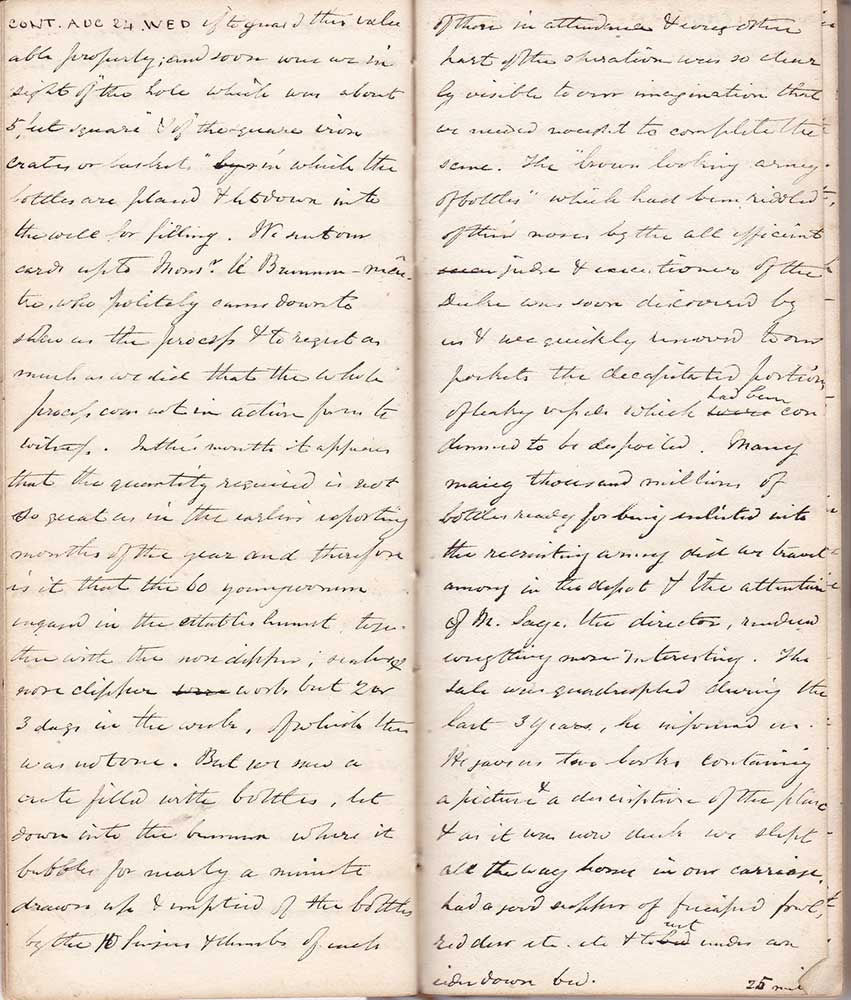 CONT. AUG 24 WED if to guard this value
able property; and soon were we in
sight of "the hole which was about
5 feet square" & of "the square iron
crates or baskets" by in which the
bottles are placed & let down into
the well for filling. We sent our
cards up to Monsr. le Brunnen-meis-
ter, who politely came down to
show us the process & to regret as
much as we did that the whole
process was not in action for us to
witness. In this month it appears
that the quantity required is not
so great as in the earlier exporting
months of the year and therefore
is it that the 60 young women
engaged in the establishment, toge-
ther with the nose dipper; sealer &
nose clipper were work but 2 or
3 days in the week, of which this
was not one. But we saw a
crate filled with bottles, let
down into the brunnen where it
bubbles for nearly a minute
drawn up & emptied of the bottles
by the 10 fingers & thumbs of each
of those in attendance & every other
part of the operation was so clear
ly visible to our imagination that
we needed nought to complete the
scene. The "brown looking army
of bottles" which had been riddled
of their noses by the all efficient
judge & executioner of the
Duke was soon discovered by
us & we quickly removed to our
pockets the decapitated portions
had been
of leaky vessels which were con
demned to be despoiled. Many
many thousand millions of
bottles ready for being enlisted into
the recruiting army did we travel
among in the depot & the attention
of M. Sage, the director, rendered
everything more interesting. The
sale was quadrupled during the
last 3 years, he informed us.
He gave us two books containing
a picture & a description of the place
& as it was now dusk we slept
all the way home in our carriage,
had a good supper of fricasseed fowl,
red deer etc. etc & to bed under an
eider down bed.
25 mil